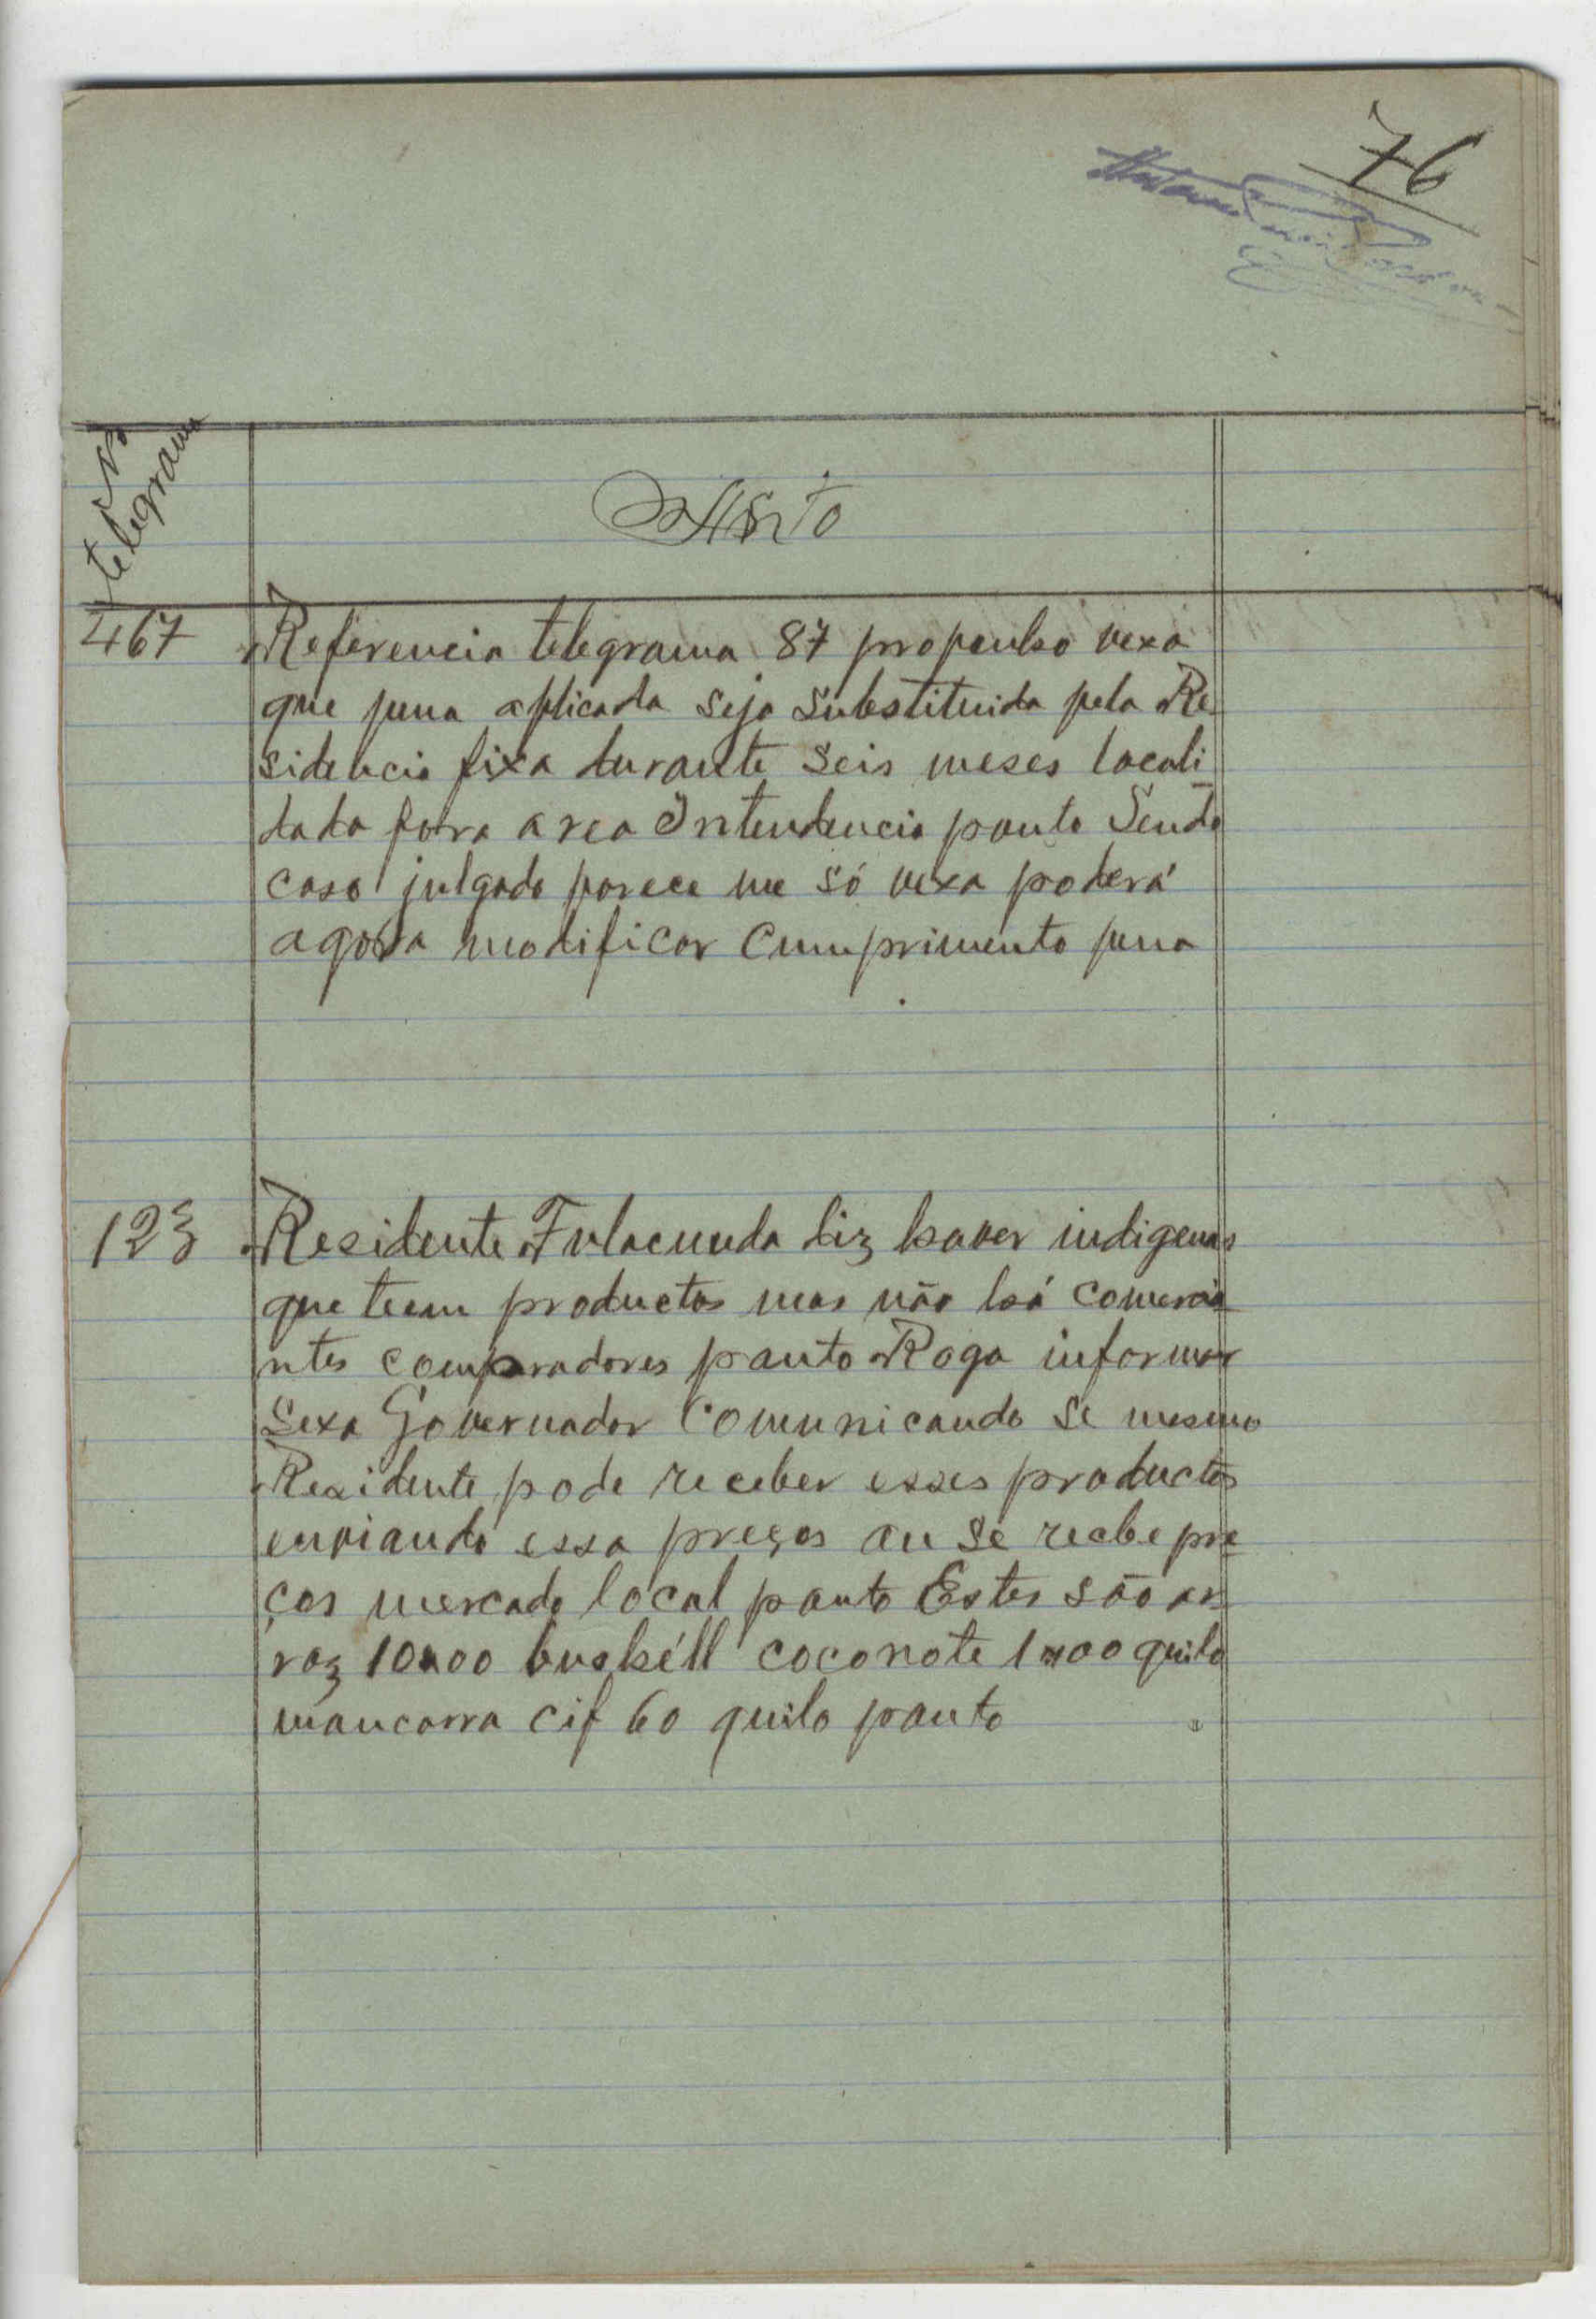 76
No
telegrama
467 Referencia telegrama 87 proponho vexa
que pena aplicada seja substituida pela Re
sidencia fixa durante seis meses locali
dada fora area Intendencia ponto Sendo
caso julgado parece me só vexa poderá
agora modificar cumprimento pena
123 Residente Fulacunda diz haver indigenas
que teem productos mas não há comercia
ntes compradores ponto Rogo informar
sexa Governador comunicando se mesmo
Residente pode receber esses productos
enviando essa preços ou se recebe pre
ços mercado local ponto Estes são ar
roz 10x00 bushéll coconote 1x00 quilo
mancarra cif 60 quilo ponto